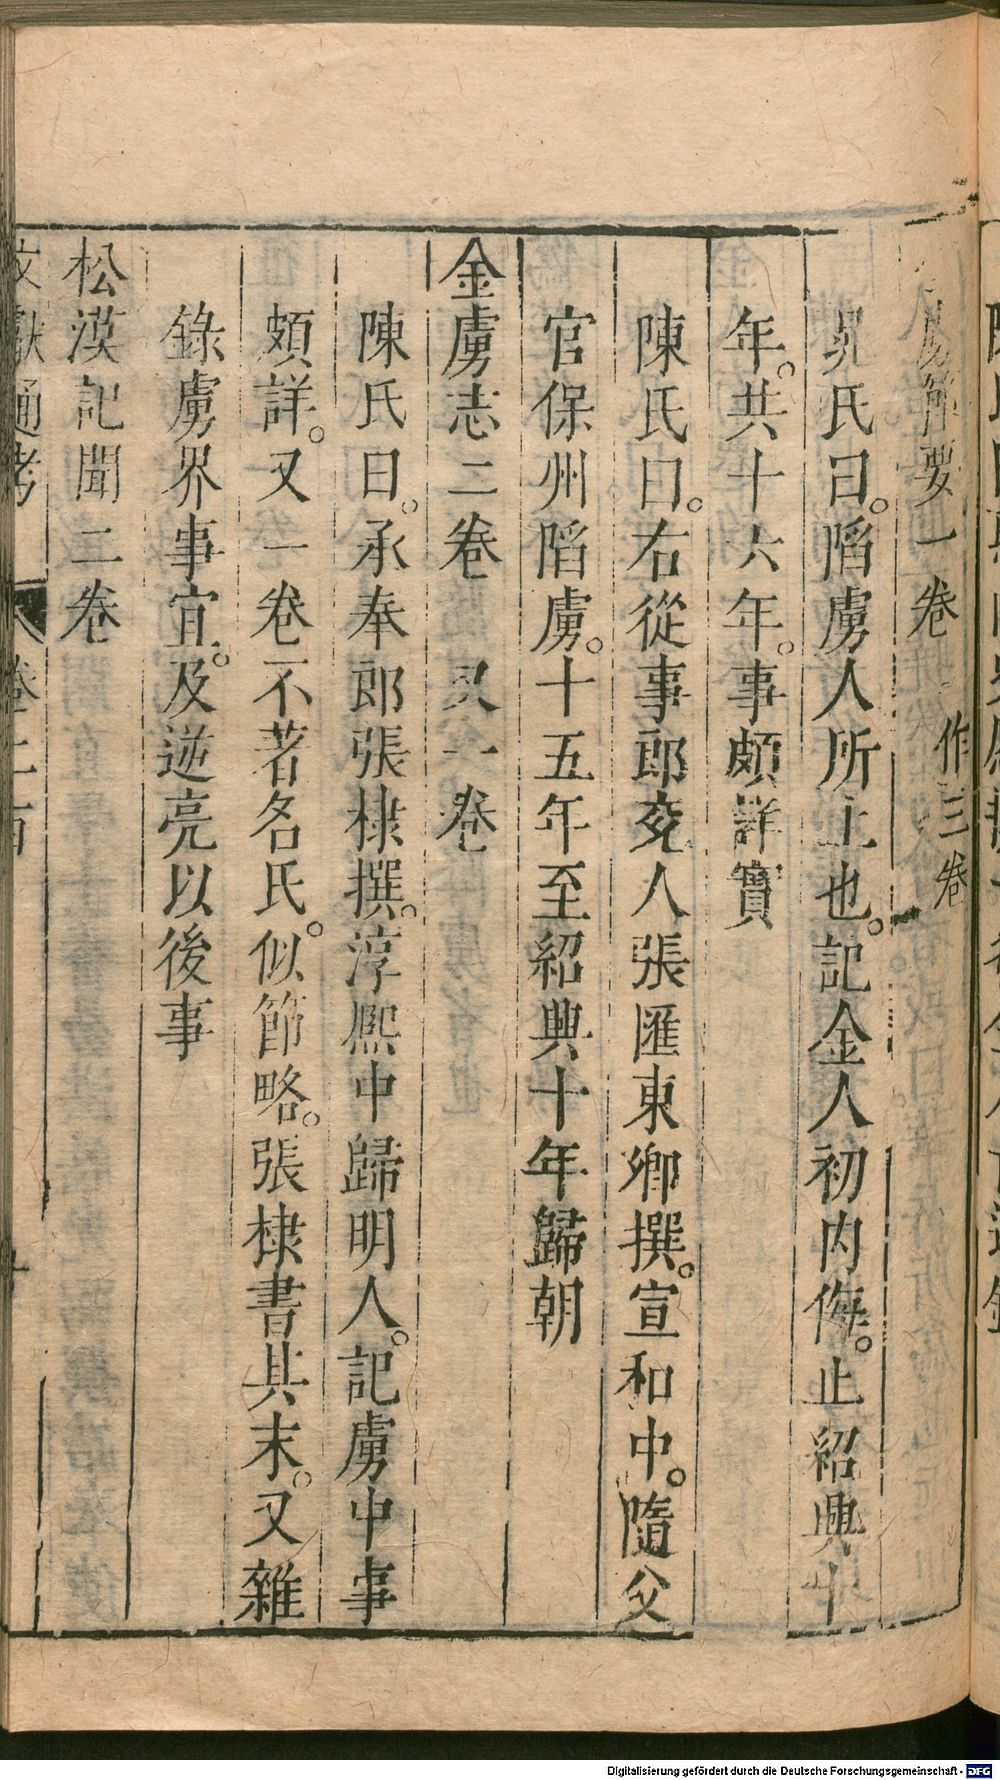 虜節要一卷 一作三卷
晁氏曰。陷虜人所上也。記金人初內侮。止紹興十
年。共十六年。事頗詳實
陳氏曰。右從事郎兗人張匯東卿撰。宣和中。隨父
官保州陷虜。十五年至紹興十年歸朝
金虜志二卷 又一卷
陳氏曰。承奉郎張棣撰。淳熙中歸明人。記虜中事
頗詳。又一卷不著名氏。似節略。張棣書其末。又雜
錄虜界事宜。及逆亮以後事
松漠記聞二卷
文獻通考 卷二百
Digitalisierung gefördert durch die Deutsche Forschungsgemeinschaft - DFG